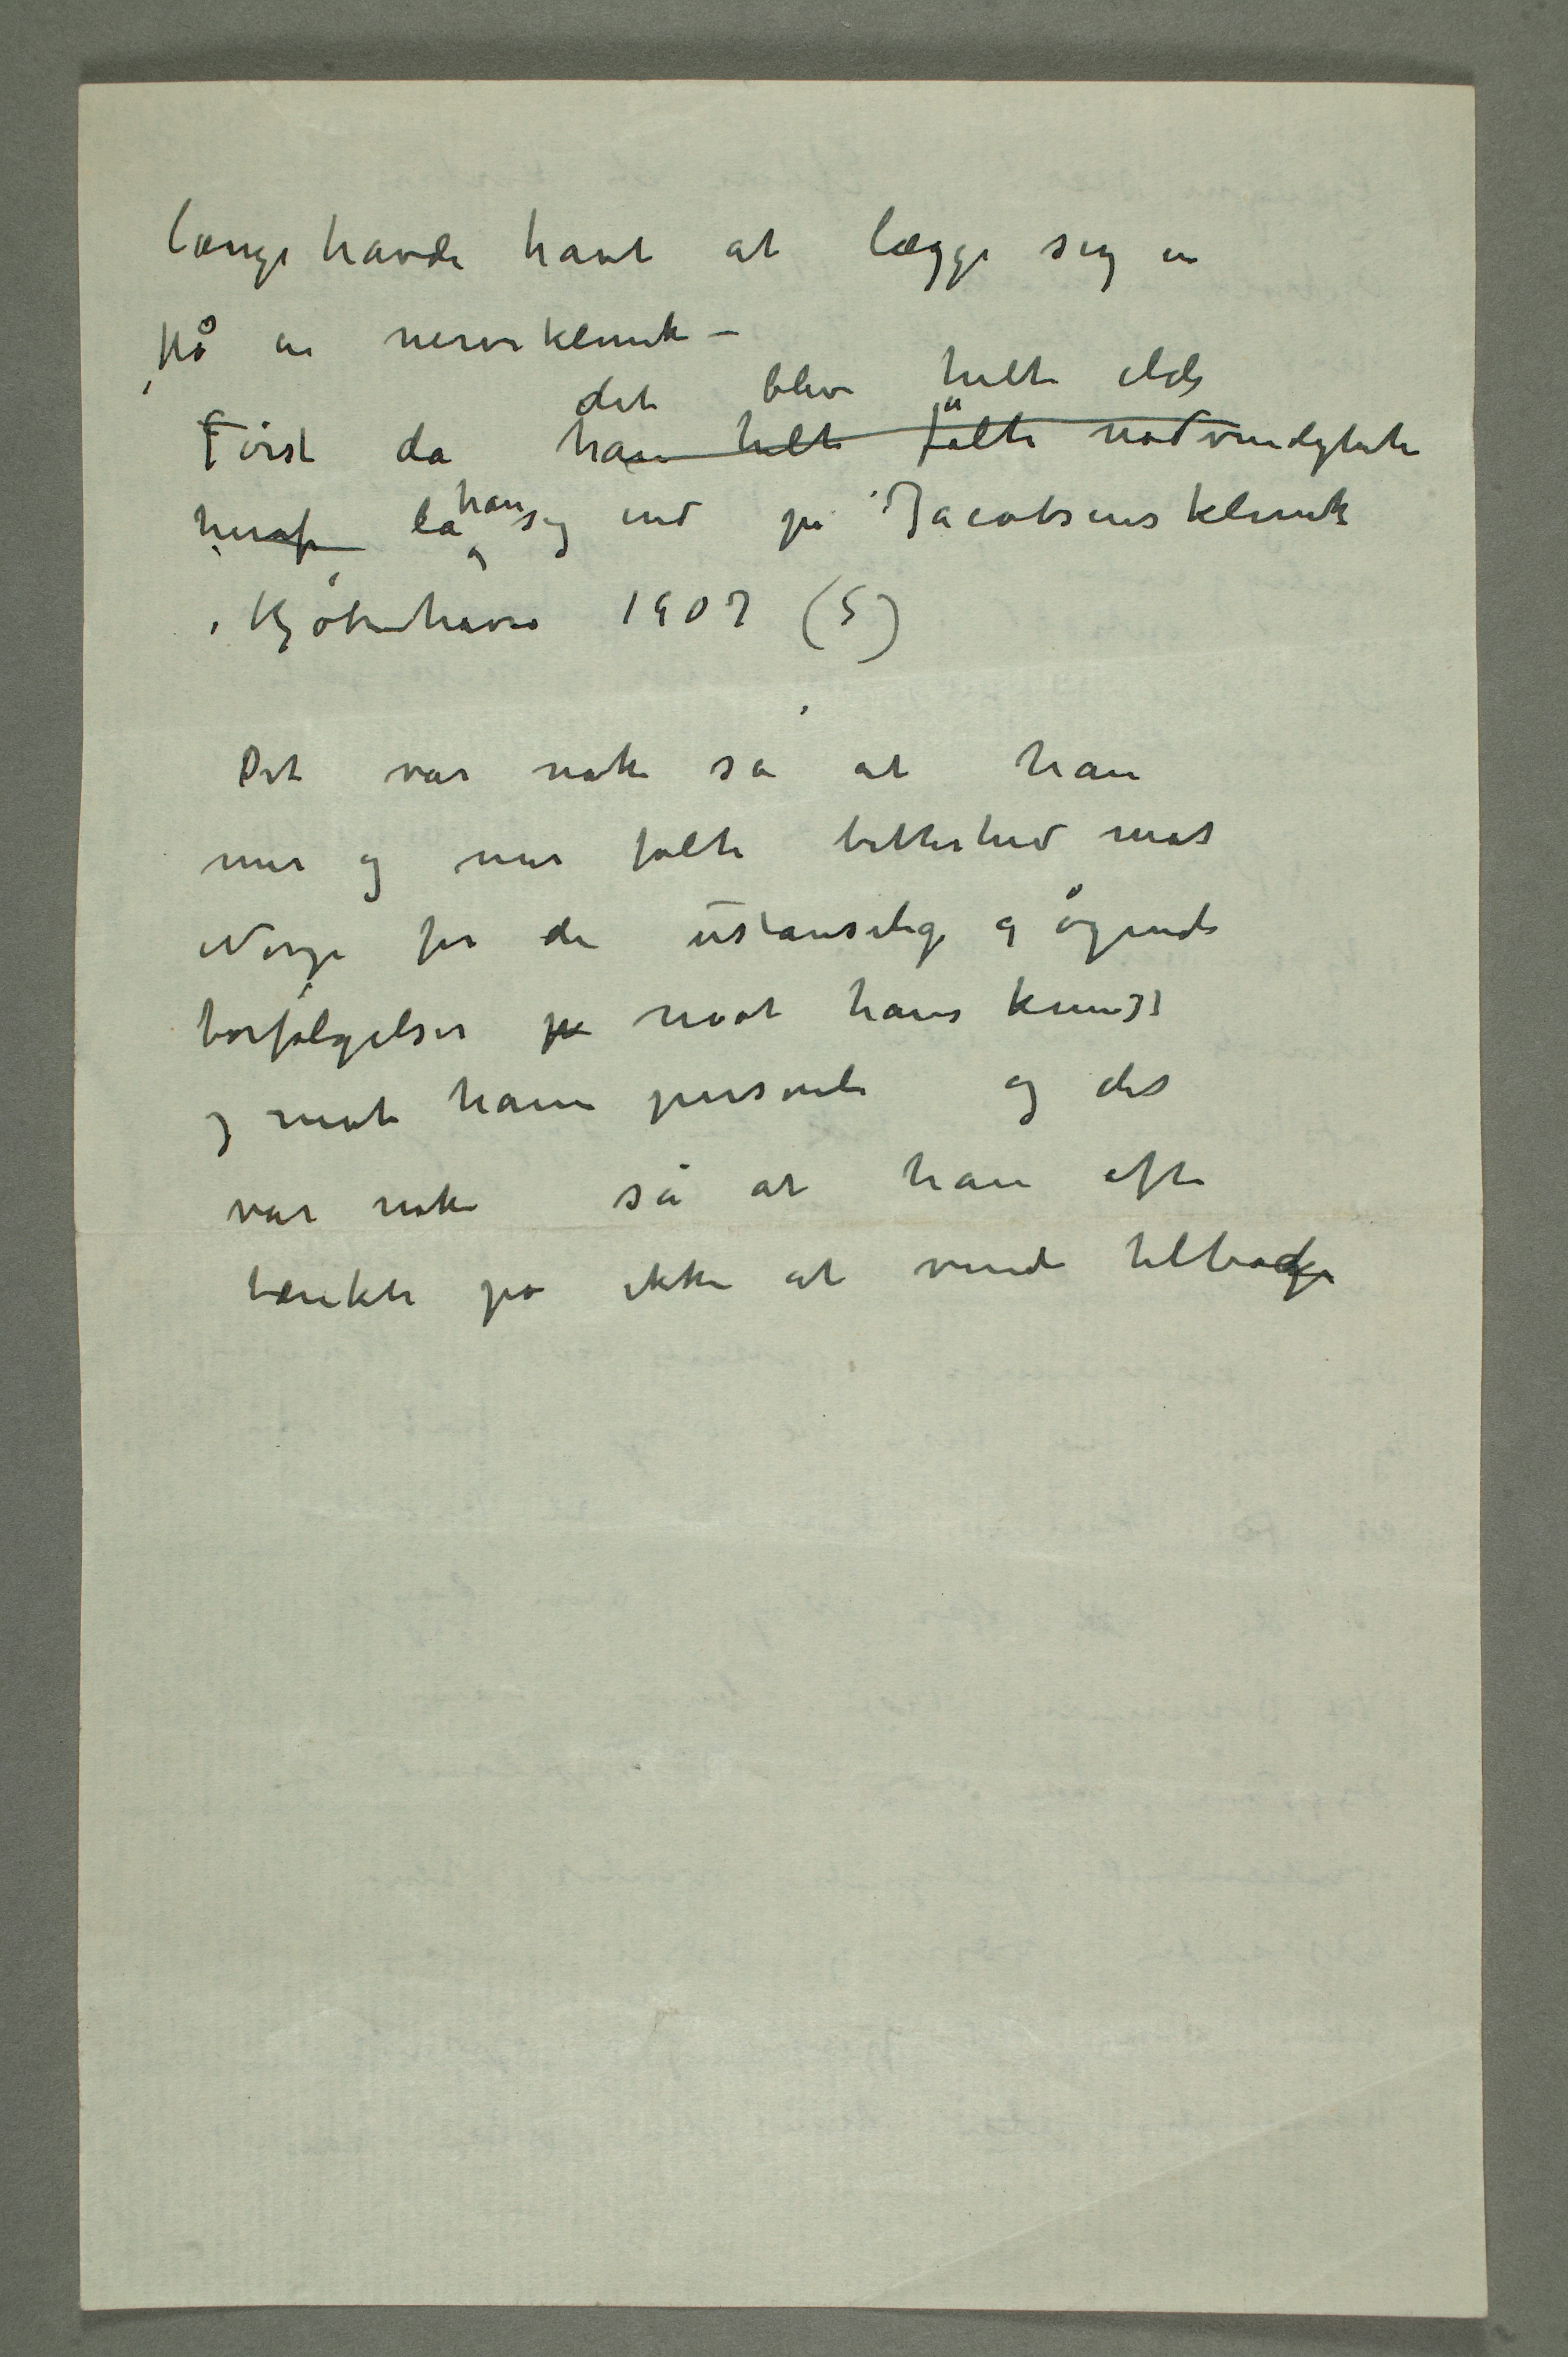 længe havde havt at lægge sig in
på en nerveklinik –
det blev helt ilde
Först da han helt fölte nødvendigheten
heraf la han sig ind på Jacobsens klinik
i Kjöbenhavn 1907 (5)
Det var nok så at han
mer og mer følte bitterhed mot
Norge for de ustanselige og ögende
forfølgelser på mot hans kunst
og mot ham personli og det
var nok så at han ofte
tænkte på ikke at vende tilbage